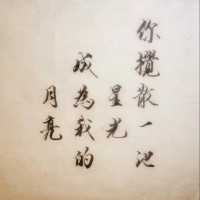 你攪散一池
星光
成為我的
月亮